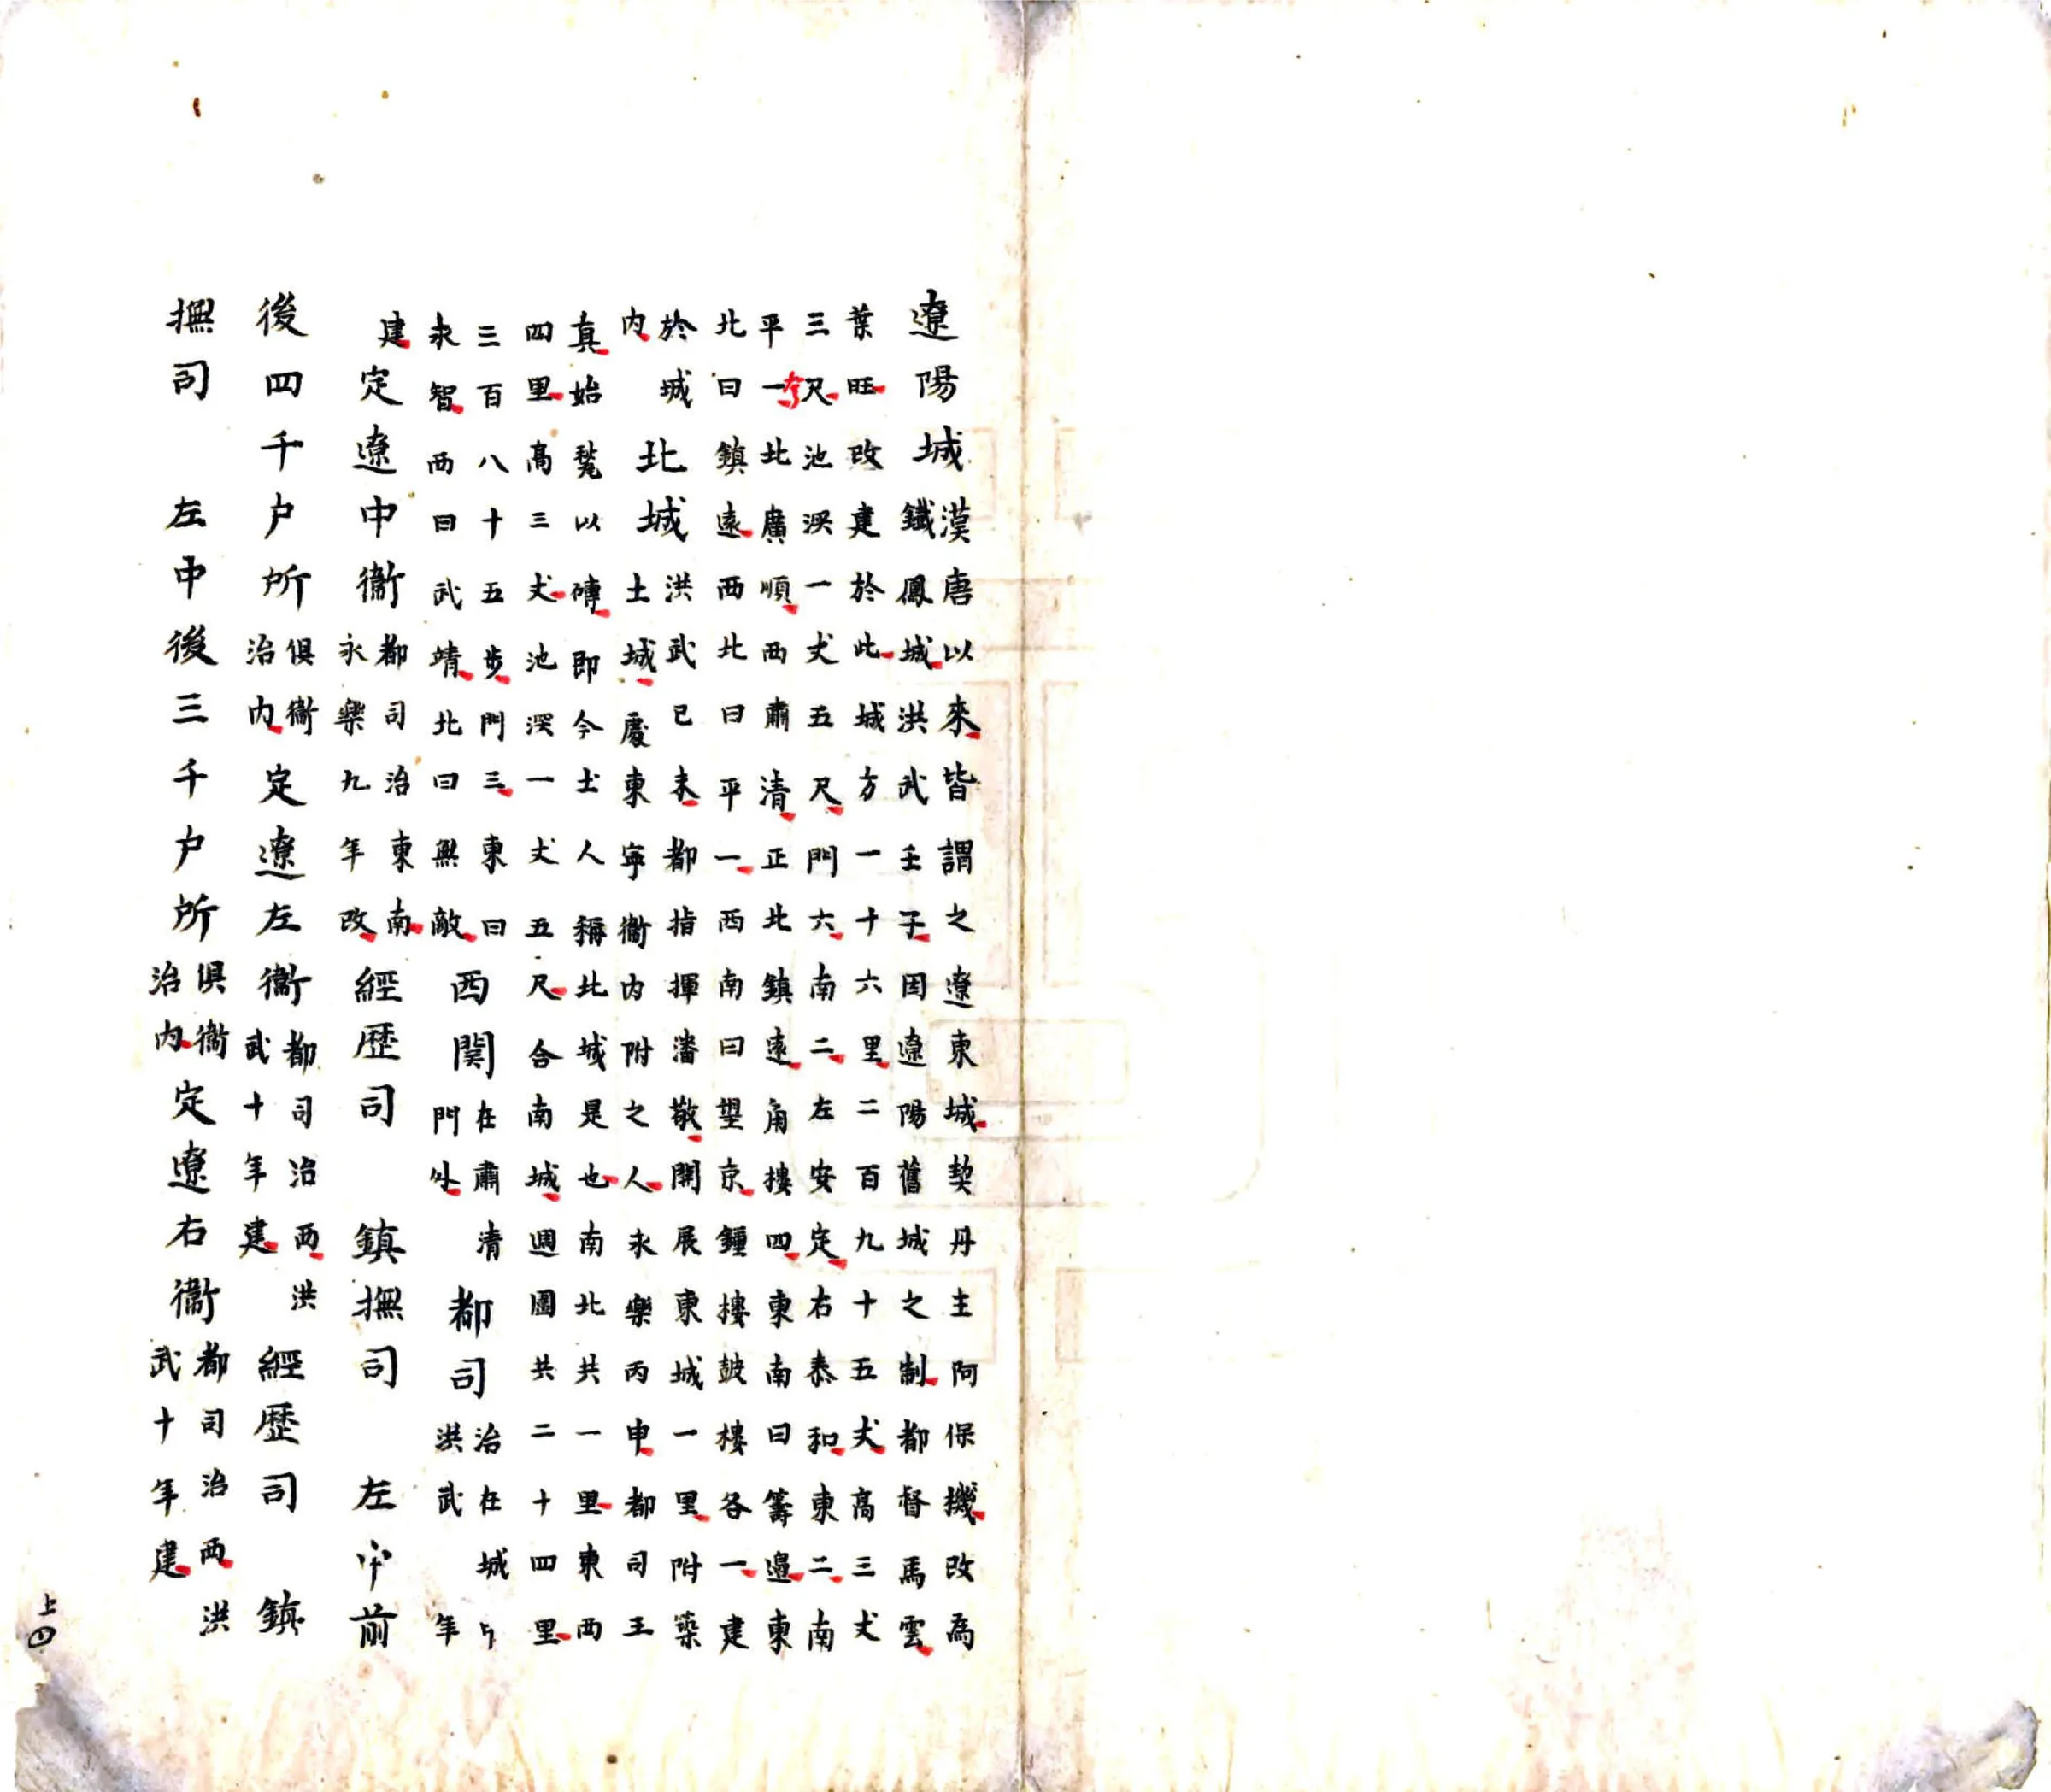 遼陽城漢唐以來皆謂之遼東城契丹主阿保機改為
鐵鳳城洪武壬子因遼陽舊城之制都督馬雲
葉旺改建於此城方一十六里二百九十五丈高三丈
三尺池深一丈五尺門六南二左安定右泰和東二南
平一北廣順西肅清正北鎮遠角樓四東南曰籌邊東
北曰鎮遠西北曰平一西南曰望京鐘樓鼓樓各一建
於城
內
北城洪武己未都指揮潘敬開展東城一里附築
土城慶東寧衛內附之人永樂丙申都司王
真始甃以磚即今士人稱此城是也南北共一里東西
四里高三丈池深一丈五尺合南城週圍共二十四里
三百八十五步門三東曰
永智西曰武靖北曰無敵
西関在肅清
門外
都司治在城
洪武年
建
定遼中衞都司治東南
永樂九年改
經歷司 鎮撫司 左中前
後四千户所俱衞
治內
定遼左衞都司治西洪
武十年建
經歷司 鎮
撫司 左中後三千户所俱衞
治內
定遼右衞都司治西洪
武十年建
上四